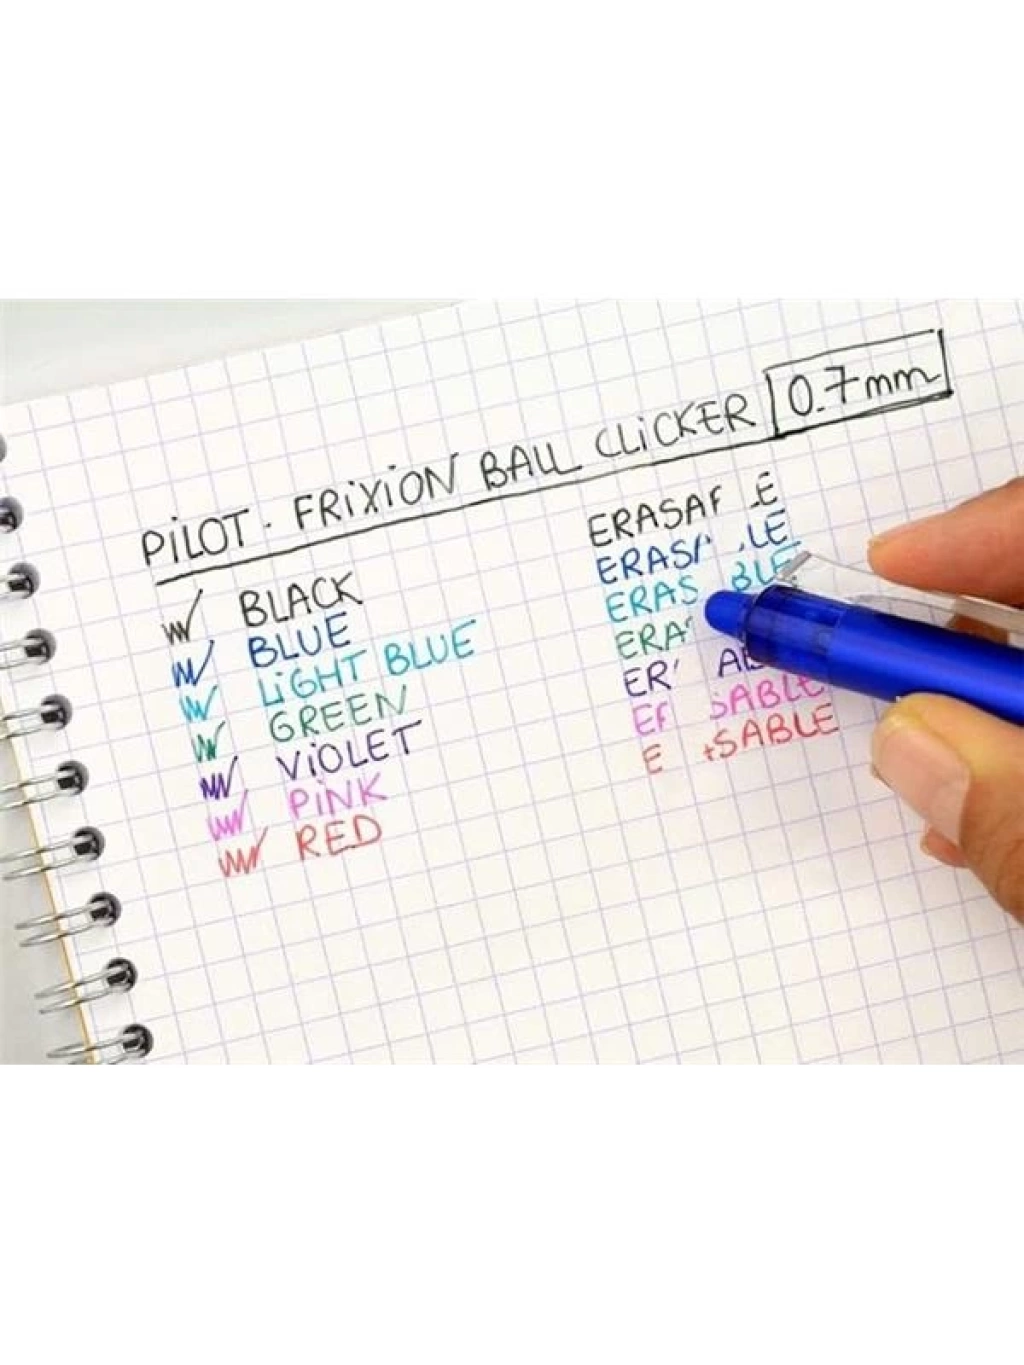 PiLOT. FRiXiON BALL CLiCKER 0.7mm
BLACK
BLUE
LiGHT BLUE
GREEN
ViOLET
PiNK
RED
ERASA E
ERAS LE
ERAS BLE
ERA
ER AB
EF SABLE
E SABLE